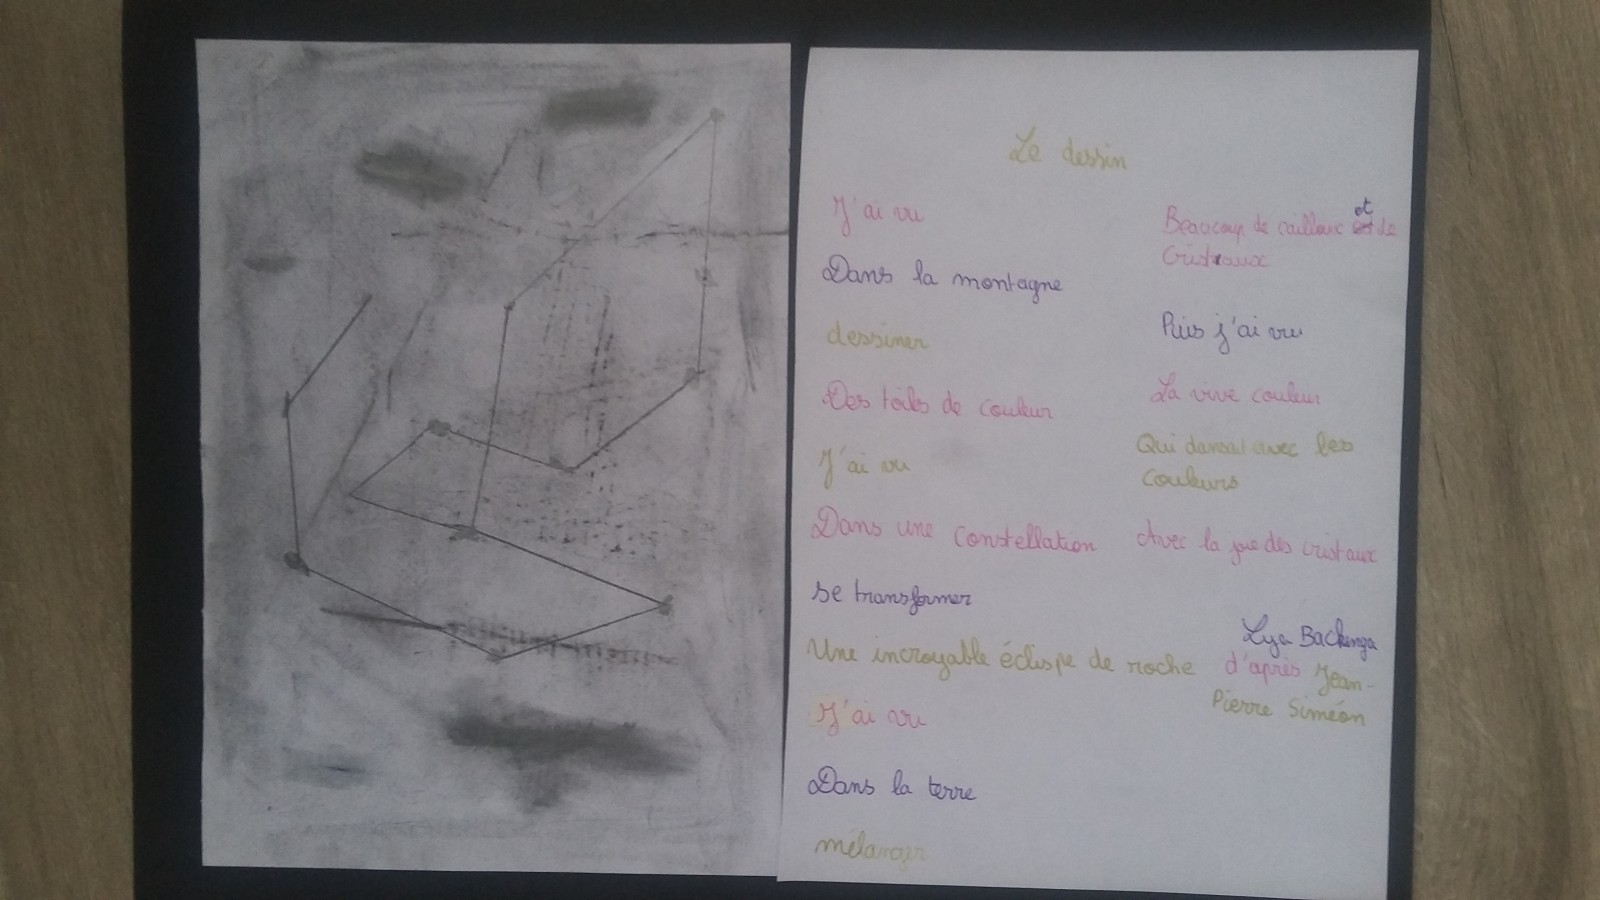 Le dessin
J'ai vu
Dans la montagne
dessiner
Des toiles de couleur
J'ai vu
Dans une constellation
se transformer
Une incroyable éclispe de roche
J'ai vu
Dans la terre
mélanger
Beaucoup de cailloux et de
Cristaux
Puis j'ai vu
La vive couleur
Qui dansait avec les
couleurs
Avec la joie des cristaux
Lya Backenga
d'après Jean-
Pierre Siméon